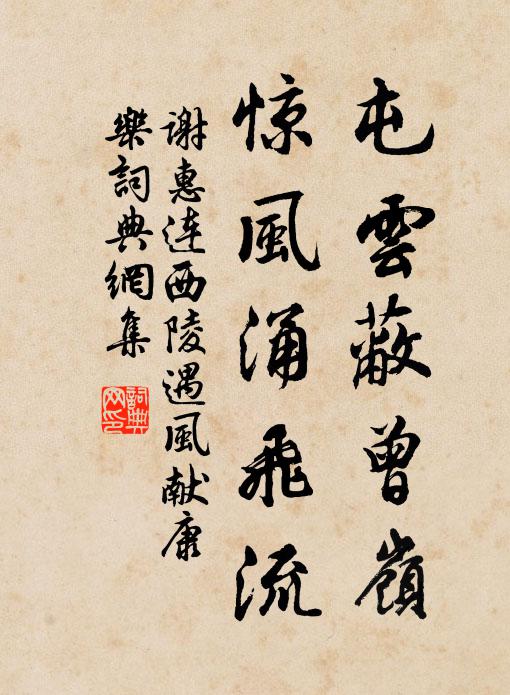 屯雲蔽曾嶺
惊風涌飛流
谢惠连西陵遇風献康
樂詞典網集
詞典网印